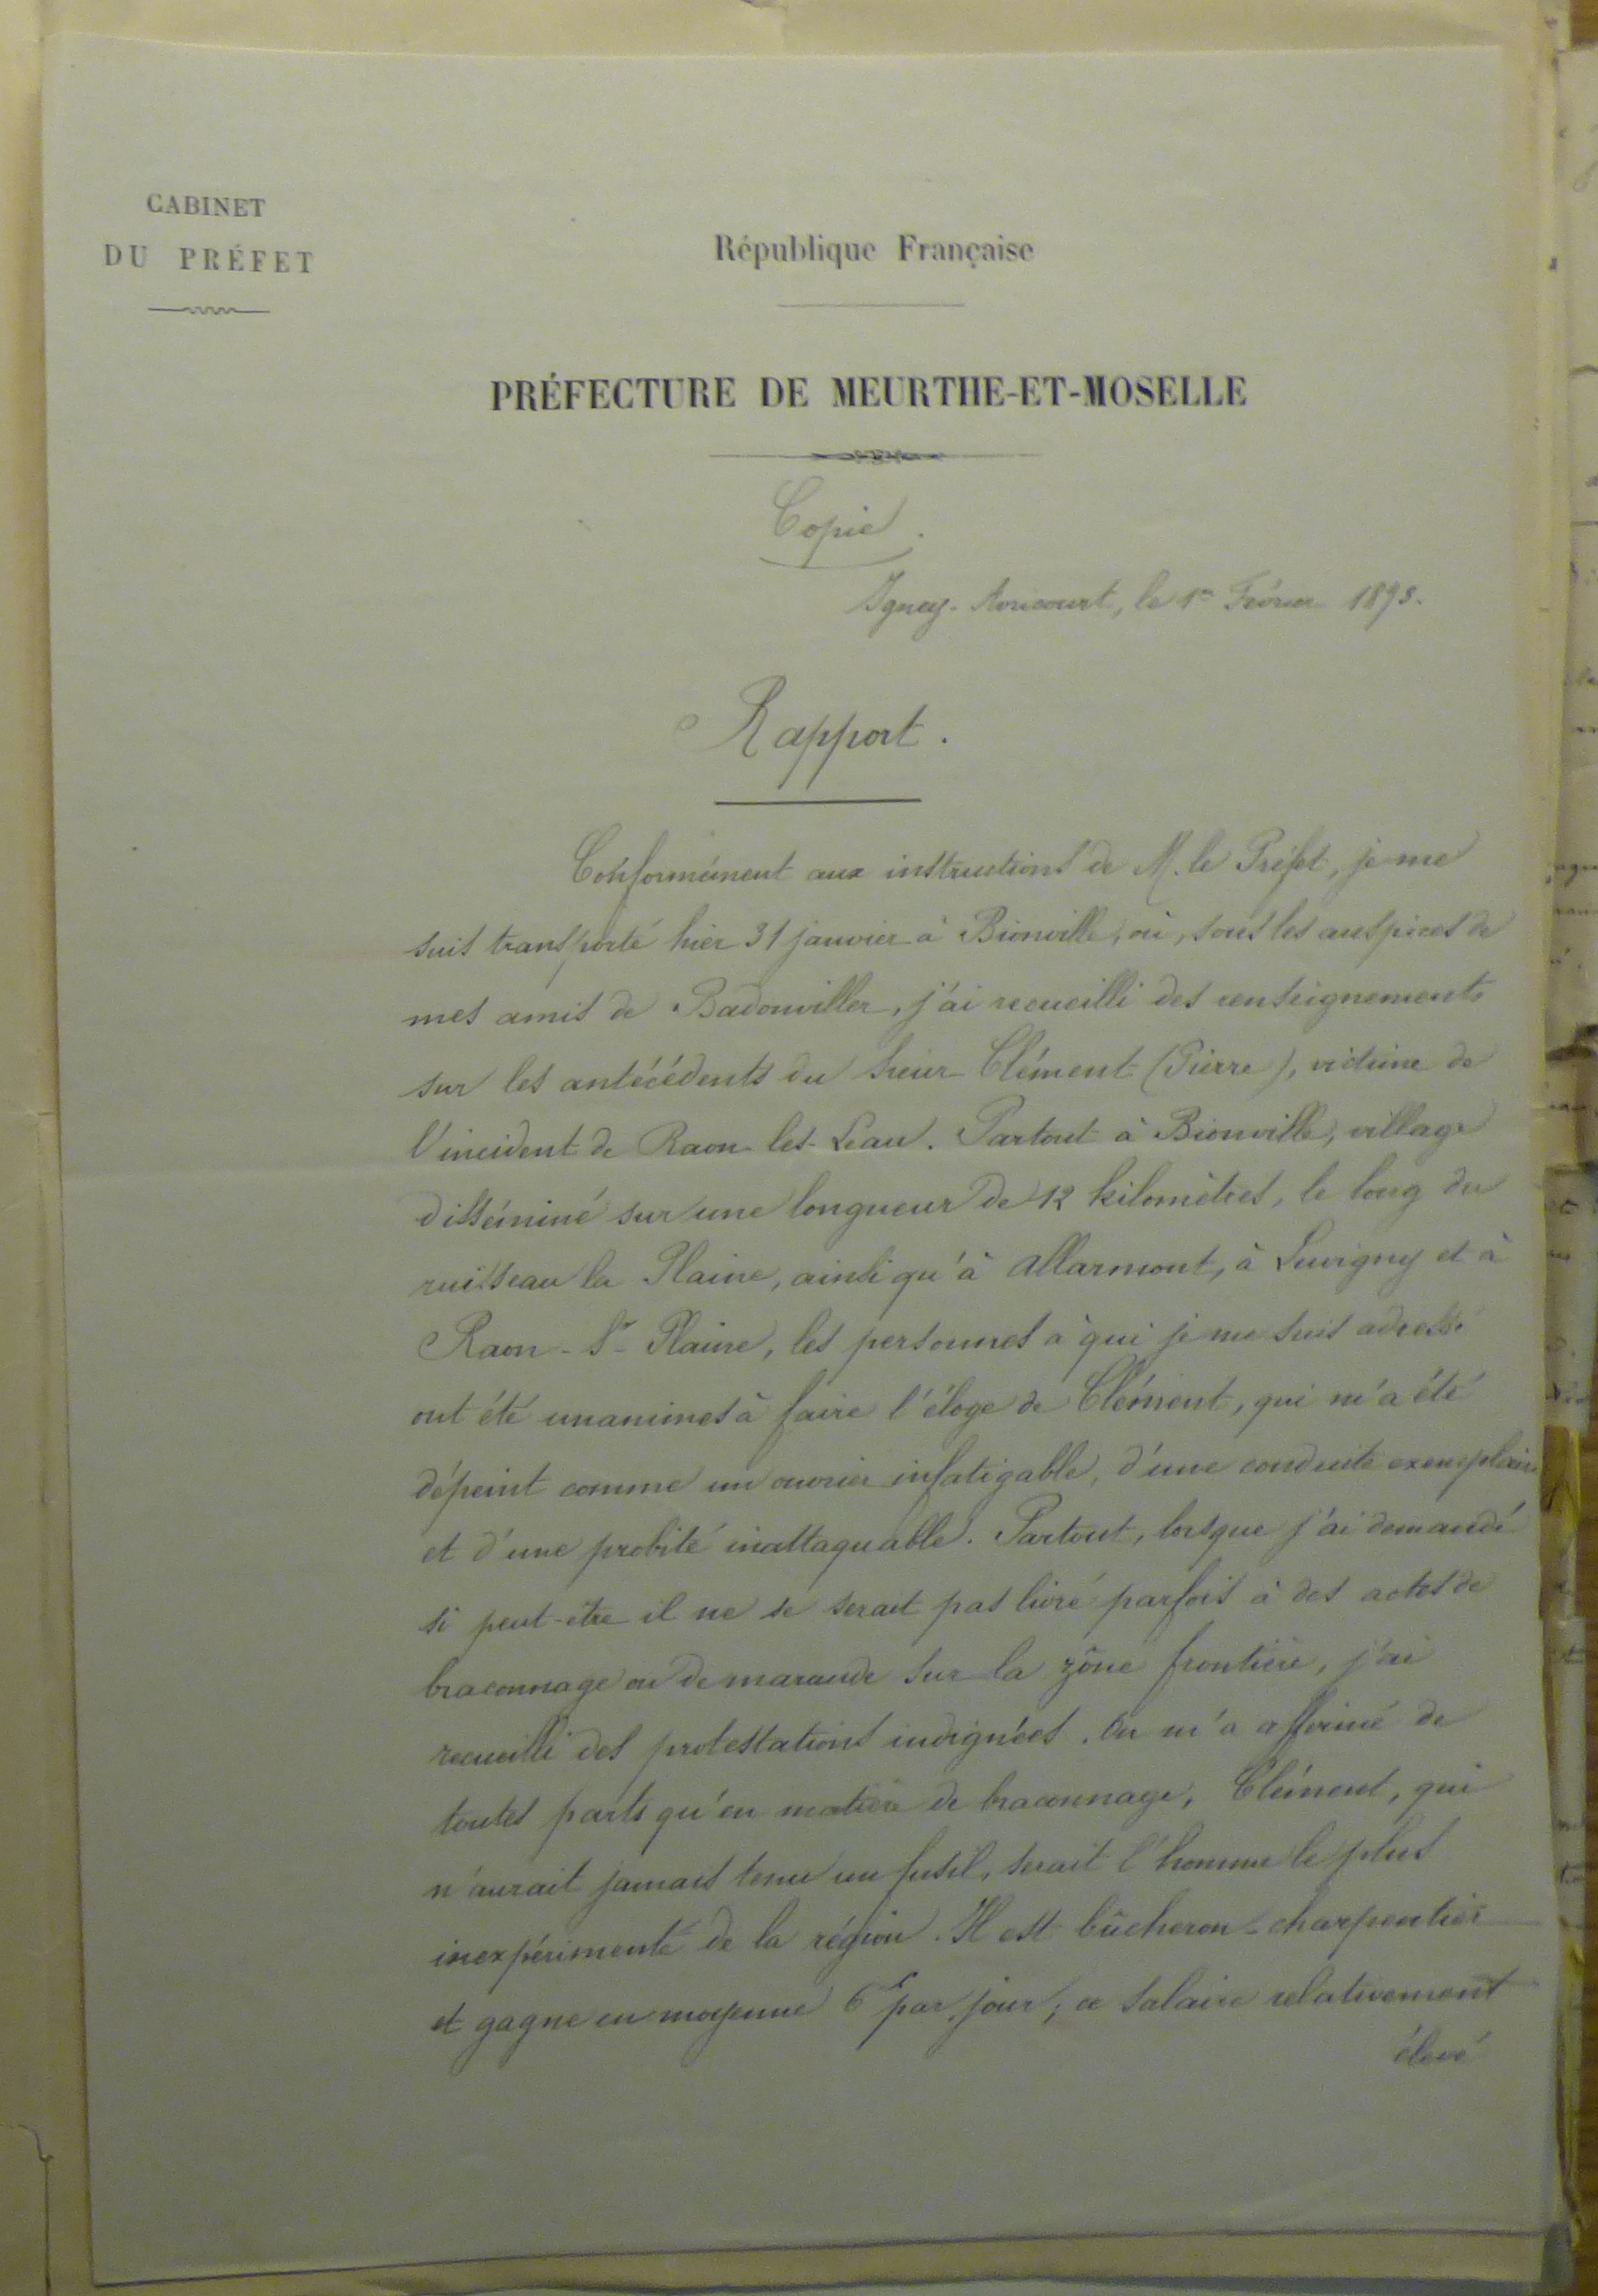 CABINET
DU PRÉFET
République Française
PRÉFECTURE DE MEURTHE-ET-MOSELLE
Copie.
Igney-Avricourt, le 1er Février 1895.
Rapport.
Conformément aux instructions de M. le Préfet, je me
suis transporté hier 31 janvier à Bionville, où, sous les auspices de
mes amis de Badonviller, j'ai recueilli des renseignements
sur les antécédents du sieur Clément (Pierre), victime de
l'incident de Raon-les-Leau. Partout à Bionville, village
disséminé sur une longueur de 12 kilomètres, le long du
ruisseau la Plaine, ainsi qu'à Allarmont, à Luvigny et à
Raon-sr-Plaine, les personnes à qui je me suis adressé
ont été unanimes à faire l'éloge de Clément, qui m'a été
dépeint comme un ouvrier infatigable, d'une conduite exemplaire
et d'une probité inattaquable. Partout, lorsque j'ai demandé
si peut-être il ne se serait pas livré parfois à des actes de
braconnage ou de maraude sur la zône frontière, j'ai
recueilli des protestations indignées. On m'a affirmé de
toutes parts qu'en matière de braconnage, Clément, qui
n'aurait jamais tenu un fusil, serait l'homme le plus
inexpérimenté de la région. Il est bûcheron-charpentier
et gagne en moyenne 6f par jour; ce salaire relativement
élevé